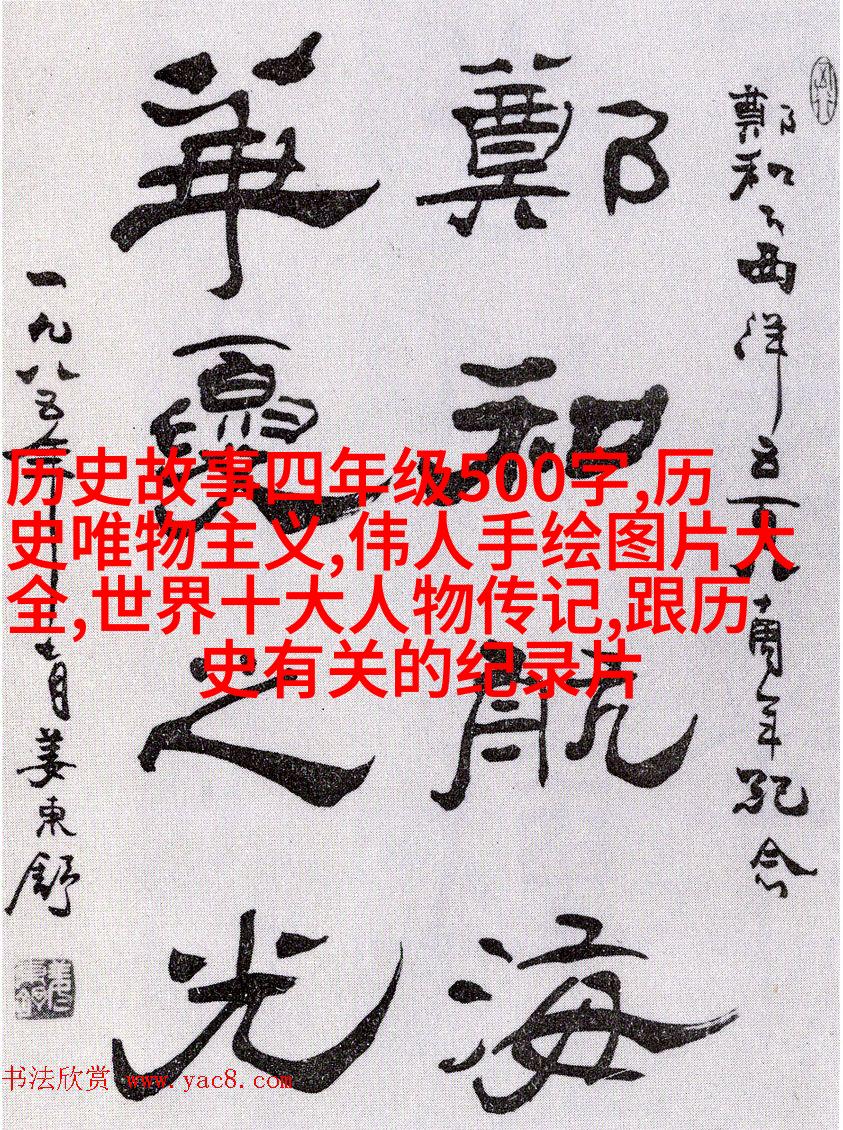 鄭和下西洋五百八十周年紀念
鄭和航海
華夏之光
一九八五年月姜東舒
历史故事四年级500字,历
史唯物主义,伟人手绘图片大
全,世界十大人物传记,跟历
史有关的纪录片
书法欣赏 www.yac8.com